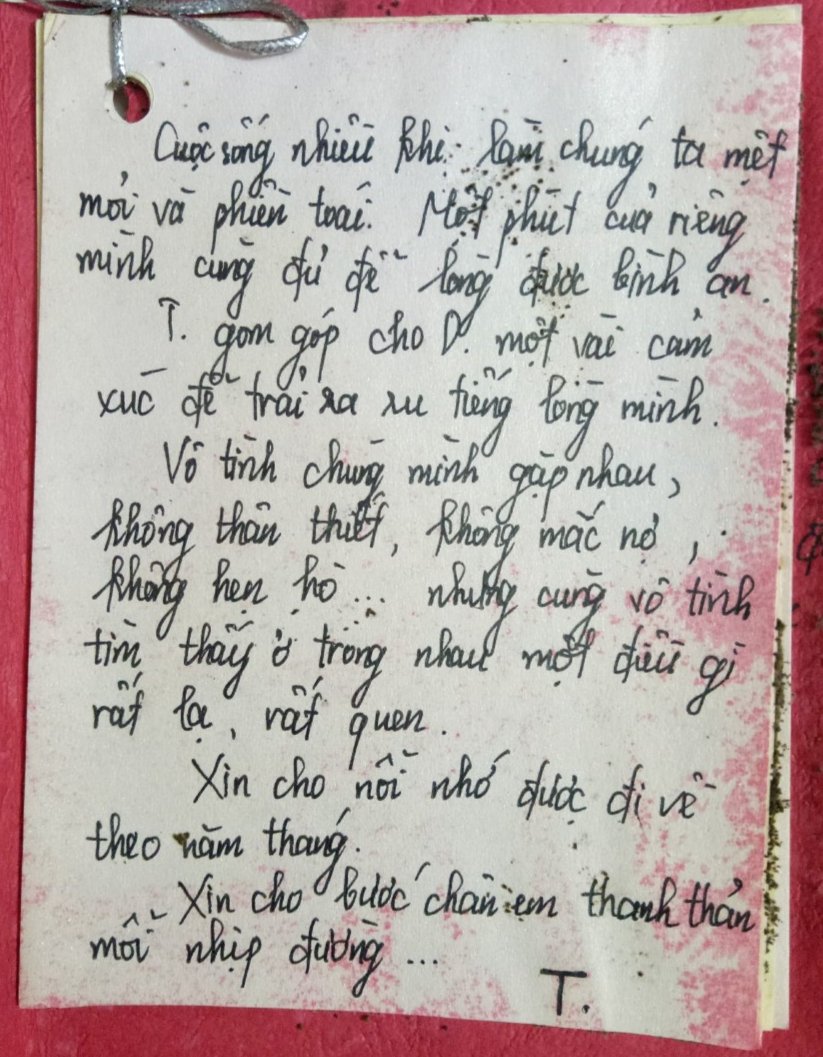 Cuộc sống nhiều khi làm chúng ta mệt
mỏi và phiền toái. Một phút của riêng
mình cũng đủ để lòng được bình an.
T. gom góp cho D. một vài cảm
xúc để trải ra ru tiếng lòng mình.
Vô tình chúng mình gặp nhau,
không thân thiết, không mắc nợ,
không hẹn hò... nhưng cũng vô tình
tìm thấy ở trong nhau một điều gì
rất lạ, rất quen.
Xin cho nỗi nhớ được đi về
theo năm tháng.
Xin cho bước chân em thanh thản
mỗi nhịp đường...
T.